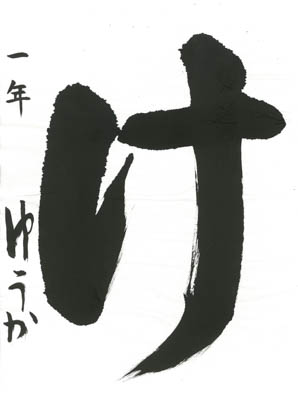 け
一年 ゆうか